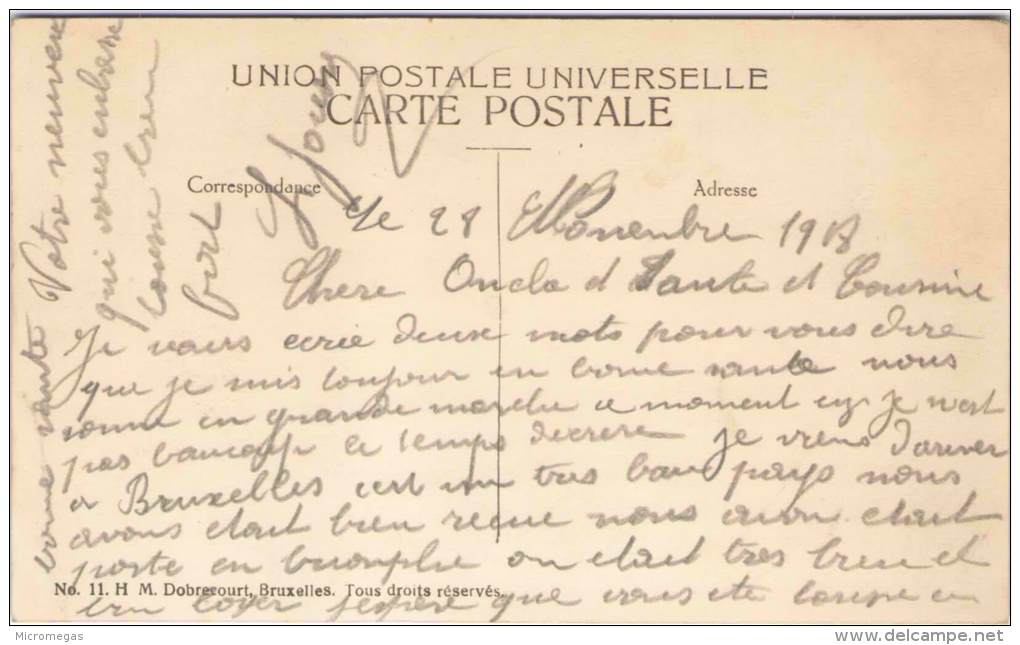 UNION POSTALE UNIVERSELLE
CARTE POSTALE
Correspondance
Adresse
le 28 Novembre 1918
Chere Oncle et Tante et Cousine
Je vous ecrie deux mots pour vous dire
que je suis toujour en bonne sante nous
somme en grande marche ce moment cy je n'est
pas baucoup le temps decrere je viens d'ariver
a Bruxelles cest un tres bau pays nous
avons etait bien recue nous avon etait
porte en triomphe on etait tres bien et
bien j'espere que vous ete toupe en
bonne sante Votre neuveu
qui vous embrasse
tousse bien
fort
No. 11. H M. Dobrecourt, Bruxelles. Tous droits réservés.
Micromegas
www.delcampe.net